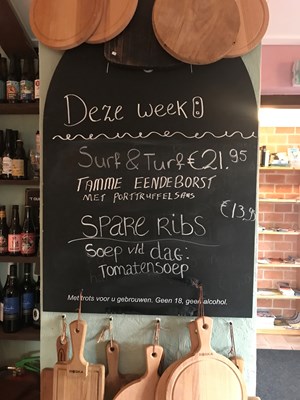 Deze week
Surf & Turf €21.95
TAMME EENDEBORST
MET PORTTRUFFELSAUS
€13,95
SPARE RIBS
Soep v/d dag:
Tomatensoep
Met trots voor u gebrouwen. Geen 18, geen alcohol.